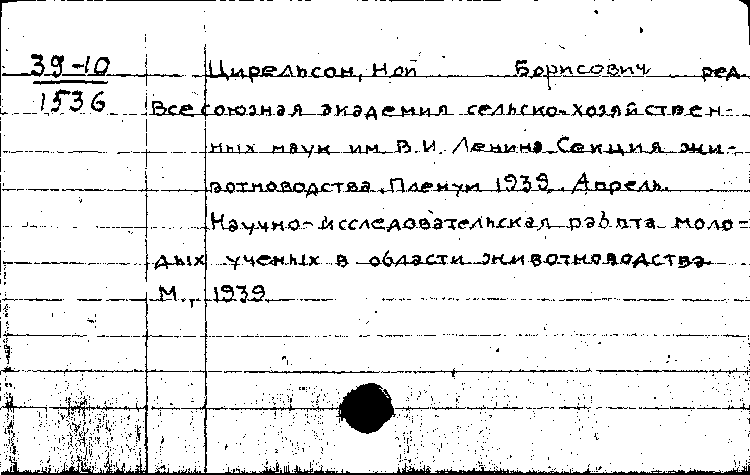 39-10
1536
Цирельсон, Ной Борисович ред.
Всесоюзная академия сельско-хозяйствен-
ных наук им. В.И. Ленина. Секция жи-
вотноводства. Пленум 1939. Апрель.
Научно-исследовательская работа моло-
дых ученых в области животноводства.
М., 1939.